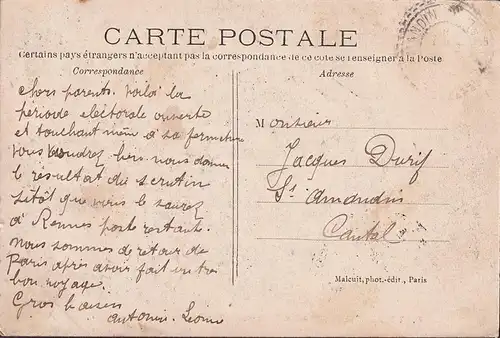 CARTE POSTALE
Certains pays étrangers n'acceptant pas la correspondance de ce côté se renseigner à la Poste
Correspondance
Adresse
chers parents. voilà la
période electorale ouverte
et touchant même à sa fermeture
vous voudrez bien nous donner
le resultat du scrutin
sitôt que vous le saurez
à Rennes poste restante
nous sommes de retour de
Paris après avoir fait un très
bon voyage
Gros baisers
antonin
Monsieur
Jacques Durif
St amandin
Cantal
Malcuit, phot.-édit., Paris